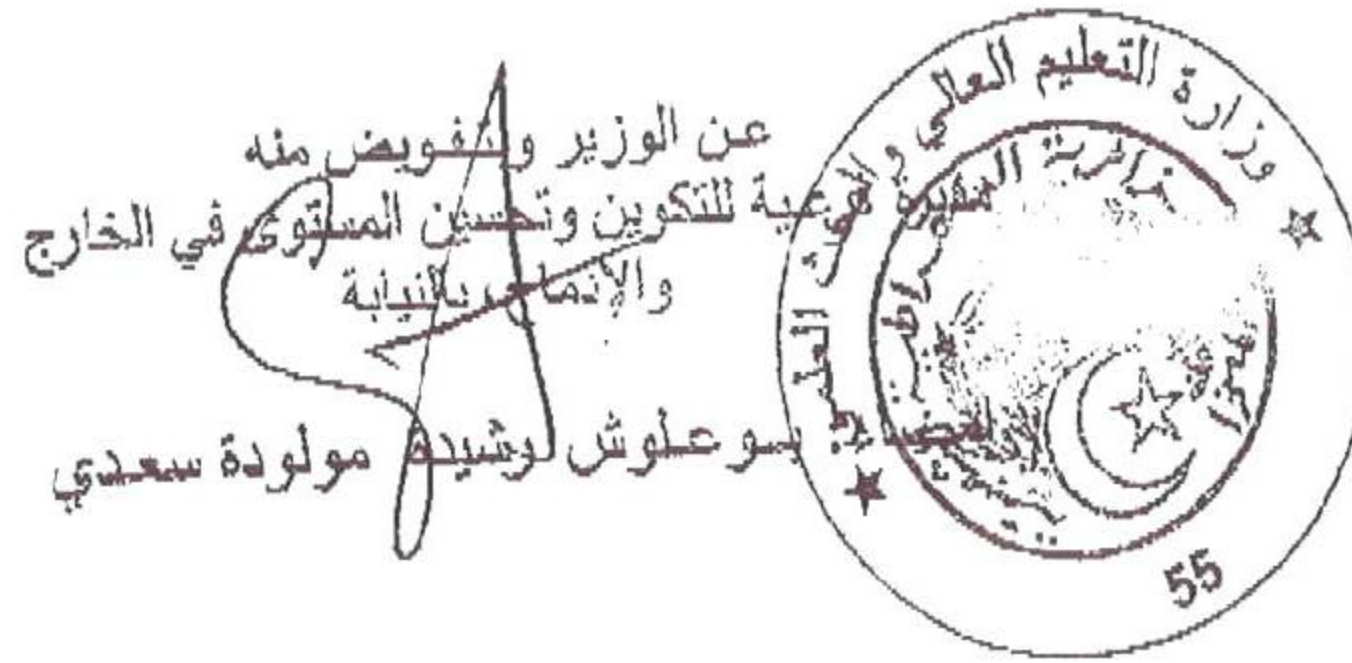 عن الوزير وبتفويض منه
المديرة الفرعية للتكوين وتحسين المستوى في الخارج
والإدماج بالنيابة
الإمضاء بوعلوش رشيدة مولودة سعدي
وزارة التعليم العالي والبحث العلمي
55